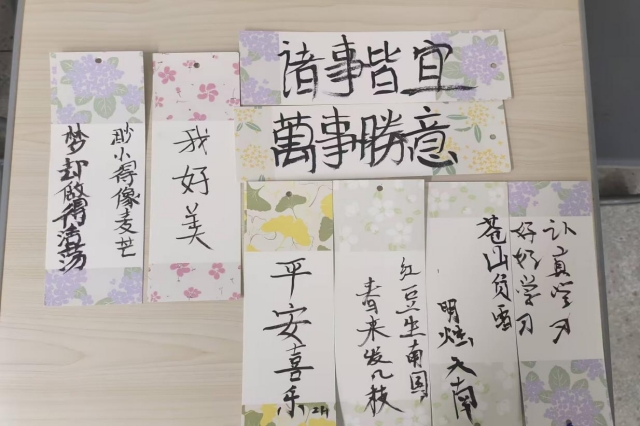 诸事皆宜
萬事勝意
渺小得像麦芒
梦却做得浩荡
我好美
平安喜乐
红豆生南国
春来发几枝
苍山负雪
明烛天南
认真学习
好好学习